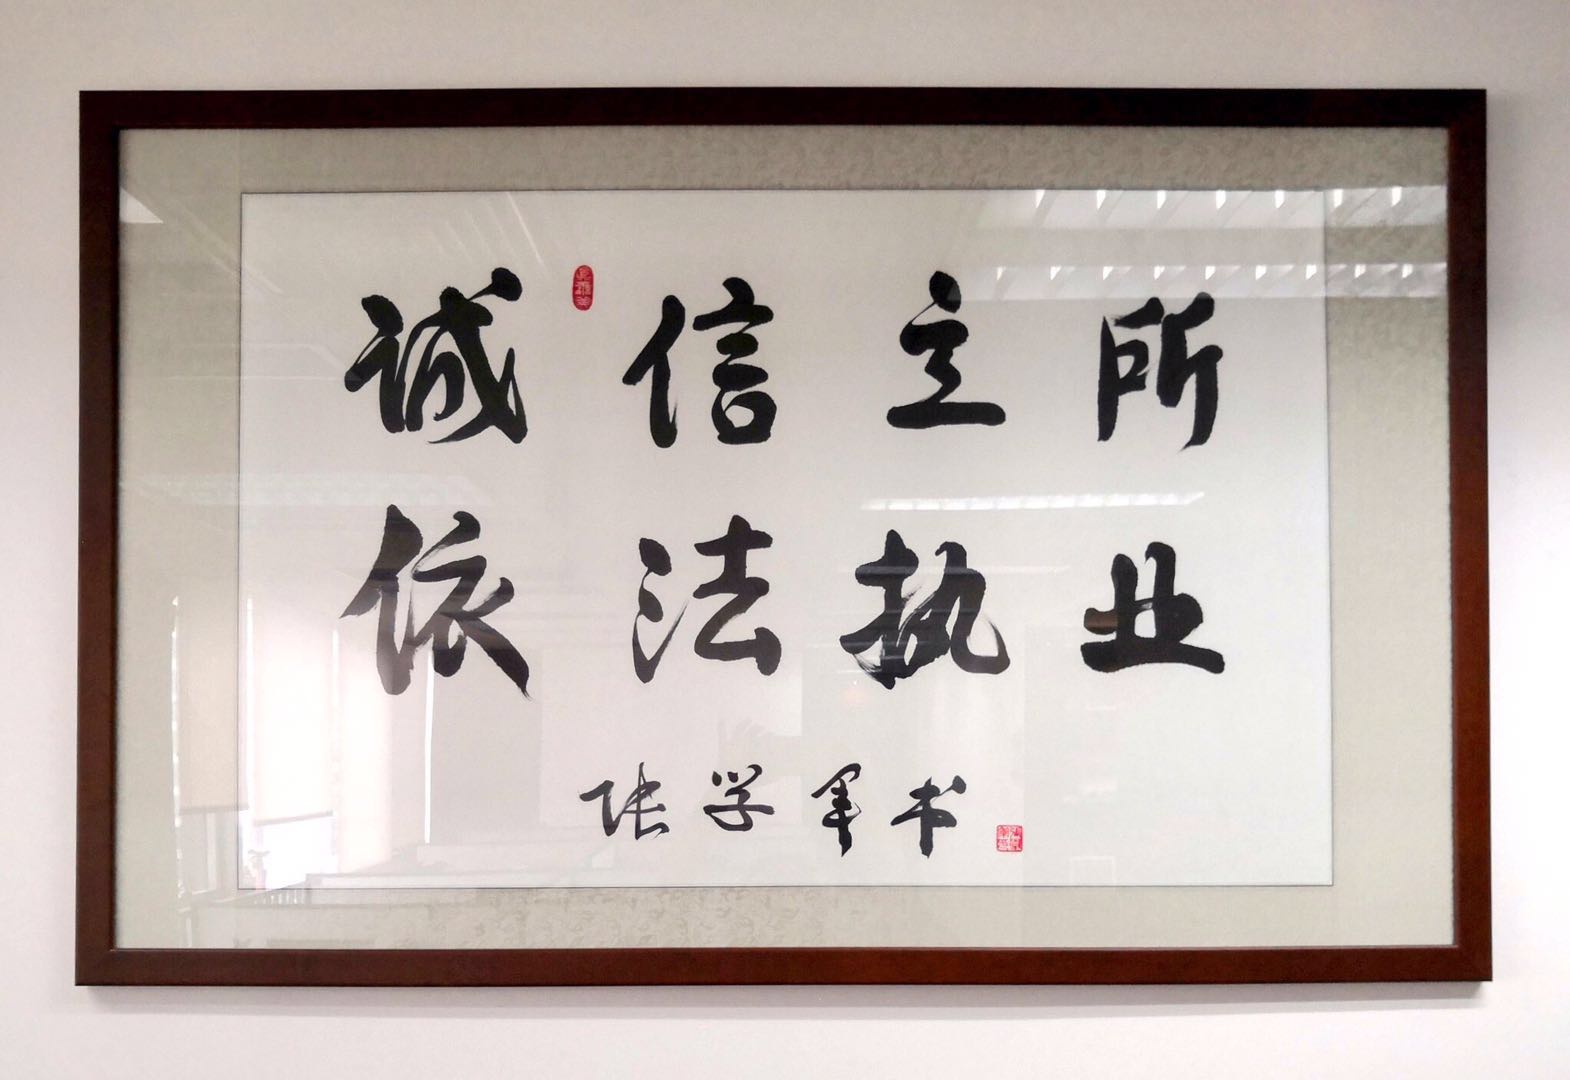 诚信立所
依法执业
张学军书